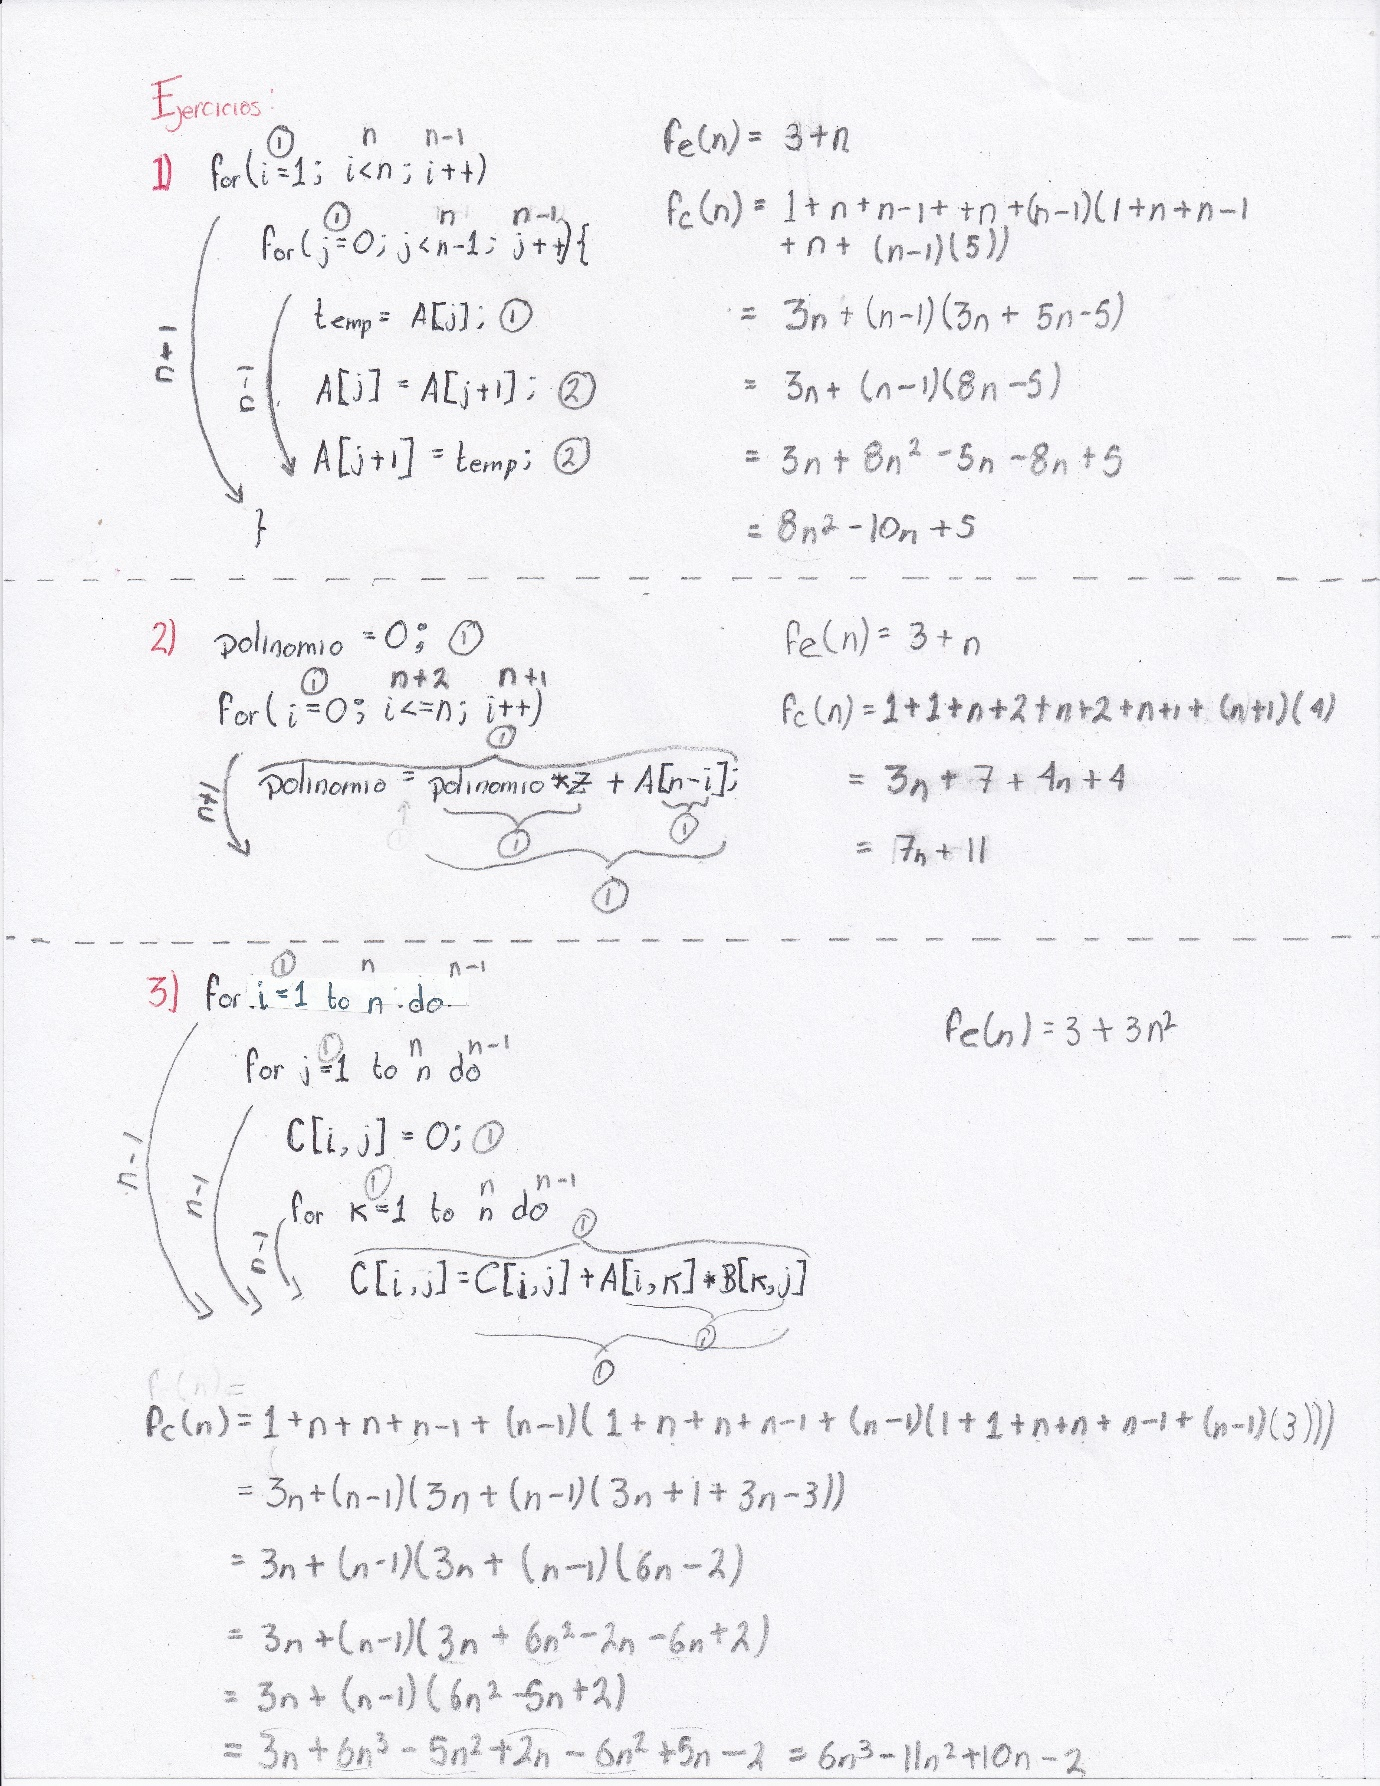 Ejercicios:
① n n-1
1) for(i=1; i<n; i++)
① n n-1
for(j=0; j<n-1; j++){
temp = A[j]; ①
A[j] = A[j+1]; ②
A[j+1] = temp; ②
}
n+1
n-1
fe(n) = 3+n
fc(n) = 1+n+n-1+ +n +(n-1)(1+n+n-1
+n+ (n-1)(5))
= 3n+(n-1)(3n+ 5n-5)
= 3n+ (n-1)(8n-5)
= 3n+8n² -5n -8n +5
= 8n² -10n +5
2) polinomio = 0; ①
① n+2 n+1
for(i=0; i<=n; i++)
①
polinomio = polinomio*z + A[n-i];
n+1
① ①
①
fe(n) = 3+n
fc(n) = 1+1+n+2+n+2+n+1+ (n+1)(4)
= 3n+7+4n+4
= 7n+11
① n n-1
3) for i=1 to n do
① n n-1
for j=1 to n do
C[i,j] = 0; ①
① n n-1
for k=1 to n do
①
C[i,j] = C[i,j] + A[i,k] * B[k,j]
①
①
n-1
n-1
n-1
fe(n) = 3+3n²
f (n) =
fc(n) = 1+n+n+n-1+(n-1)(1+n+n+n-1+(n-1)(1+1+n+n+n-1+(n-1)(3)))
= 3n+(n-1)(3n+(n-1)(3n+1+3n-3))
= 3n+(n-1)(3n+(n-1)(6n-2)
= 3n+(n-1)(3n+6n²-2n-6n+2)
= 3n+(n-1)(6n²-5n+2)
= 3n+6n³-5n²+2n-6n²+5n-2 = 6n³-11n²+10n-2